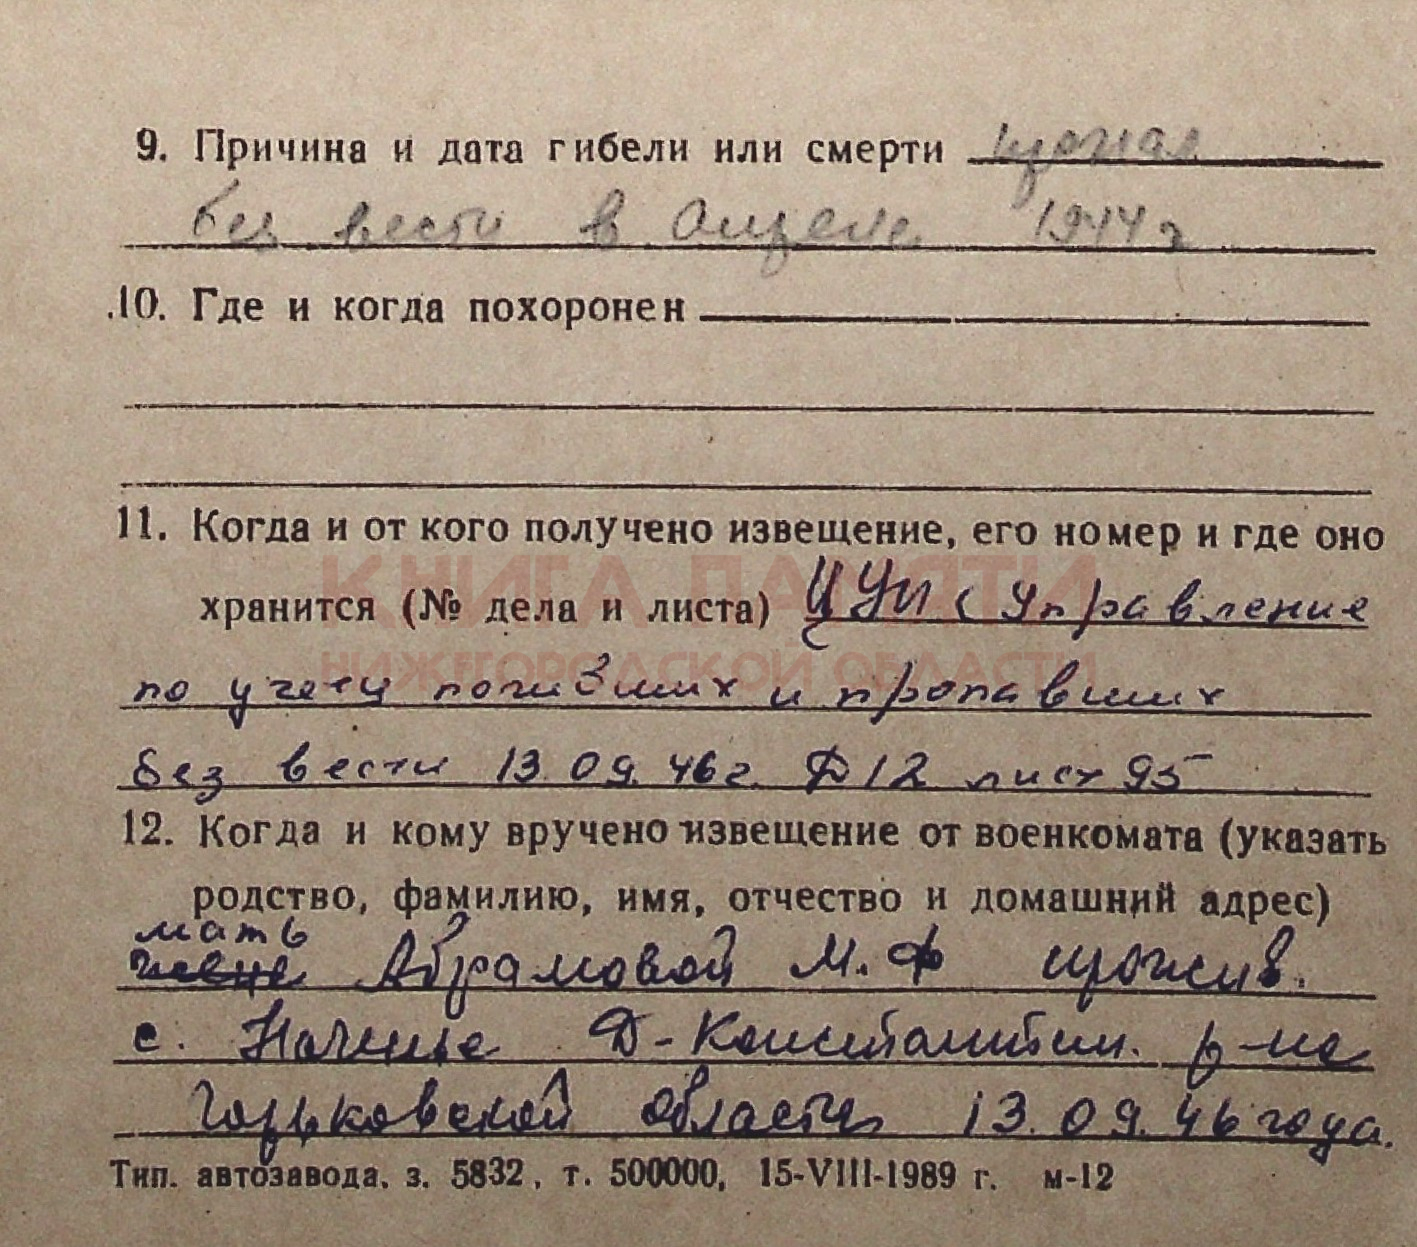 9. Причина и дата гибели или смерти пропал
без вести в апреле 1944 г
10. Где и когда похоронен
11. Когда и от кого получено извещение, его номер и где оно
КНИГА ПАМЯТИ
хранится (№ дела и листа) ЦУП (Управление
НИЖЕГОРОДСКОЙ ОБЛАСТИ
по учету погибших и пропавших
без вести 13.09.46г. Д12 лист 95
12. Когда и кому вручено извещение от военкомата (указать
родство, фамилию, имя, отчество и домашний адрес)
мать
Абрамовой М.Ф прожив.
с. Д-Константин. р-на
Горьковской области 13.09.46 года.
Тип. автозавода. з. 5832, т. 500000, 15-VIII-1989 г. м-12